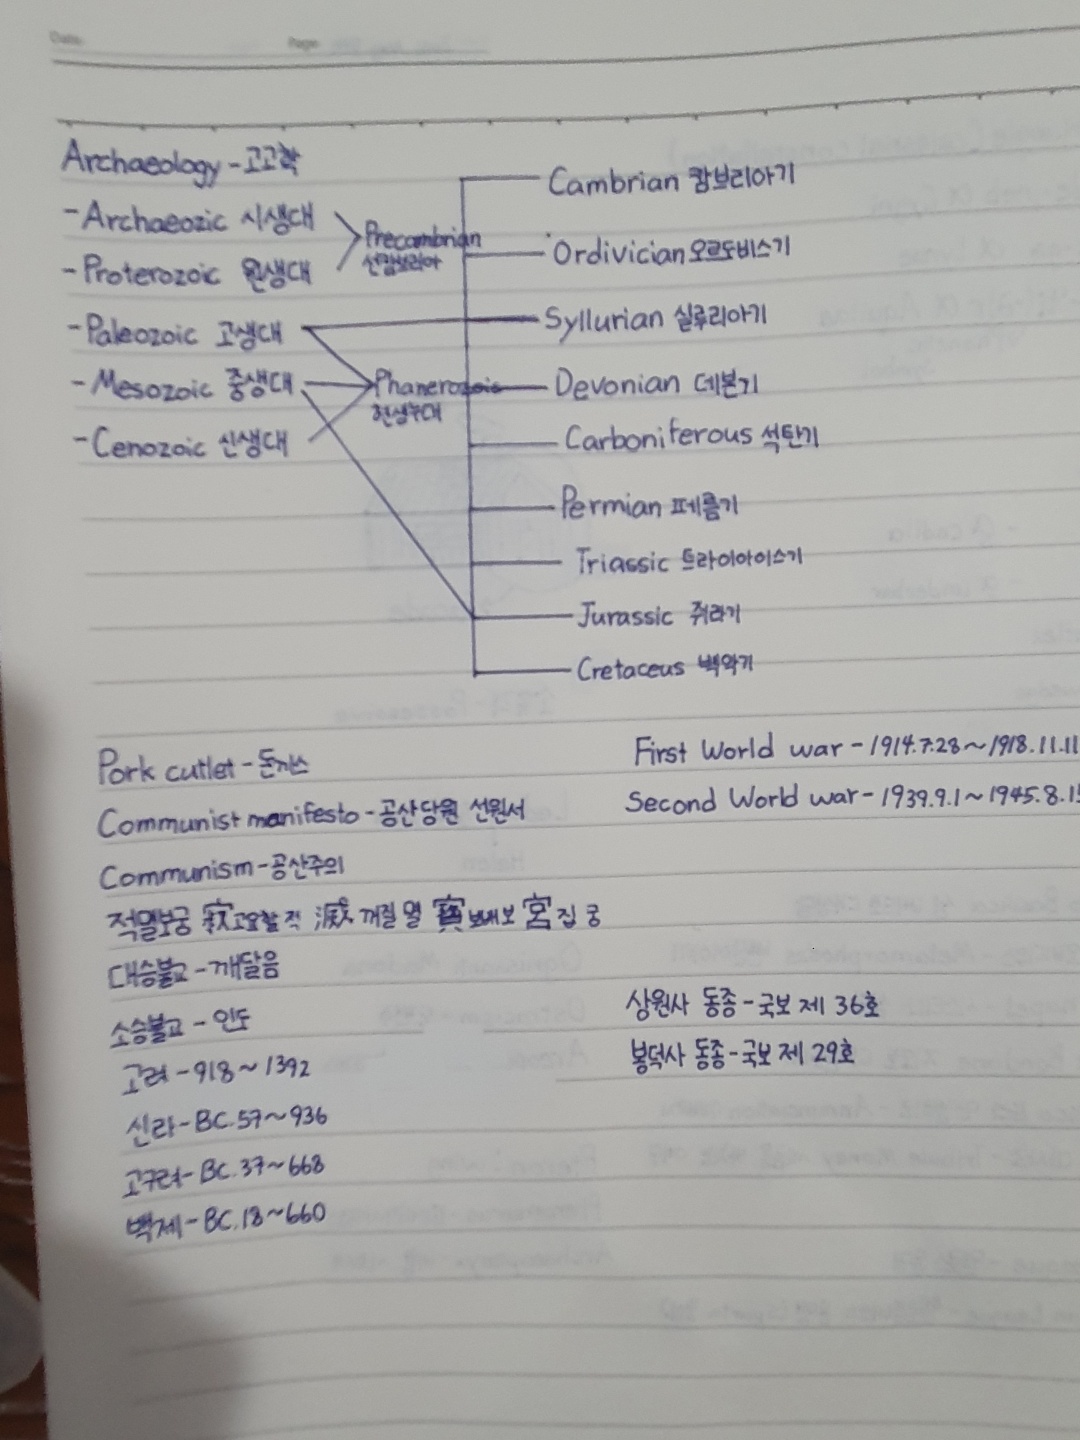 Date. Page.
Archaeology - 고고학
- Archaeozic 시생대
- Proterozoic 원생대
Precambrian
선캄브리아
- Paleozoic 고생대
- Mesozoic 중생대
- Cenozoic 신생대
Phanerozoic
현생누대
Cambrian 캄브리아기
Ordivician 오르도비스기
Syllurian 실루리아기
Devonian 데본기
Carboniferous 석탄기
Permian 페름기
Triassic 트라이아이스기
Jurassic 쥐라기
Cretaceus 백악기
Pork cutlet - 돈까스
Communist manifesto - 공산당원 선원서
Communism - 공산주의
적멸보궁 고요할 적 꺼질 멸 寶 보배 보 宮 집 궁
대승불교 - 깨달음
소승불교 - 인도
고려 - 918 ~ 1392
신라 - BC.57 ~ 936
고구려 - BC.37 ~ 668
백제 - BC.18 ~ 660
First World war - 1914.7.28 ~ 1918.11.11
Second World war - 1939.9.1 ~ 1945.8.15
상원사 동종 - 국보 제 36호
봉덕사 동종 - 국보 제 29호